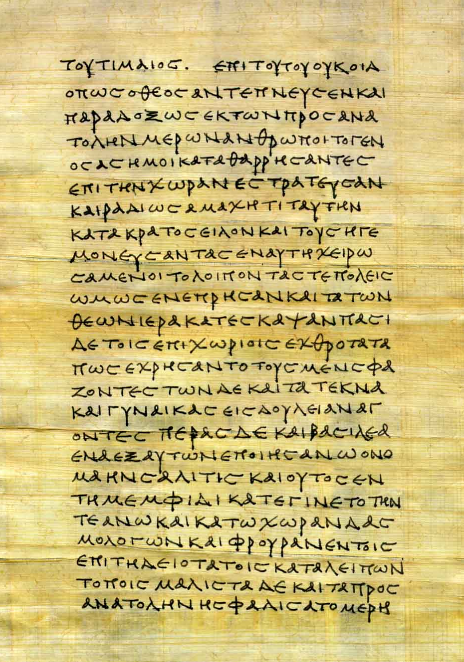 ΤΟΥΤΙΜΑΙΟΣ. ΕΠΙ ΤΟΥΤΟΥ ΟΥΚ ΟΙΑ
ΟΠΩΣ Ο ΘΕΟΣ ΑΝΤΕΠΝΕΥΣΕΝ ΚΑΙ
ΠΑΡΑΔΟΞΩΣ ΕΚ ΤΩΝ ΠΡΟΣ ΑΝΑ
ΤΟΛΗΝ ΜΕΡΩΝ ΑΝΘΡΩΠΟΙ ΤΟ ΓΕΝ
ΟΣ ΑΣΗΜΟΙ ΚΑΤΑΘΑΡΡΗΣΑΝΤΕΣ
ΕΠΙ ΤΗΝ ΧΩΡΑΝ ΕΣΤΡΑΤΕΥΣΑΝ
ΚΑΙ ΡΑΔΙΩΣ ΑΜΑΧΗΤΙ ΤΑΥΤΗΝ
ΚΑΤΑ ΚΡΑΤΟΣ ΕΙΛΟΝ ΚΑΙ ΤΟΥΣ ΗΓΕ
ΜΟΝΕΥΣΑΝΤΑΣ ΕΝ ΑΥΤΗ ΧΕΙΡΩ
ΣΑΜΕΝΟΙ ΤΟ ΛΟΙΠΟΝ ΤΑΣ ΤΕ ΠΟΛΕΙΣ
ΩΜΩΣ ΕΝΕΠΡΗΣΑΝ ΚΑΙ ΤΑ ΤΩΝ
ΘΕΩΝ ΙΕΡΑ ΚΑΤΕΣΚΑΨΑΝ ΠΑΣΙ
ΔΕ ΤΟΙΣ ΕΠΙΧΩΡΙΟΙΣ ΕΧΘΡΟΤΑΤΑ
ΠΩΣ ΕΧΡΗΣΑΝΤΟ ΤΟΥΣ ΜΕΝ ΣΦΑ
ΖΟΝΤΕΣ ΤΩΝ ΔΕ ΚΑΙ ΤΑ ΤΕΚΝΑ
ΚΑΙ ΓΥΝΑΙΚΑΣ ΕΙΣ ΔΟΥΛΕΙΑΝ ΑΓ
ΟΝΤΕΣ ΠΕΡΑΣ ΔΕ ΚΑΙ ΒΑΣΙΛΕΑ
ΕΝΑ ΕΞ ΑΥΤΩΝ ΕΠΟΙΗΣΑΝ Ω ΟΝΟ
ΜΑ ΗΝ ΣΑΛΙΤΙΣ ΚΑΙ ΟΥΤΟΣ ΕΝ
ΤΗ ΜΕΜΦΙΔΙ ΚΑΤΕΓΙΝΕΤΟ ΤΗΝ
ΤΕ ΑΝΩ ΚΑΙ ΚΑΤΩ ΧΩΡΑΝ ΔΑΣ
ΜΟΛΟΓΩΝ ΚΑΙ ΦΡΟΥΡΑΝ ΕΝ ΤΟΙΣ
ΕΠΙΤΗΔΕΙΟΤΑΤΟΙΣ ΚΑΤΑΛΕΙΠΩΝ
ΤΟΠΟΙΣ ΜΑΛΙΣΤΑ ΔΕ ΚΑΙ ΤΑ ΠΡΟΣ
ΑΝΑΤΟΛΗΝ ΗΣΦΑΛΙΣΑΤΟ ΜΕΡΗ